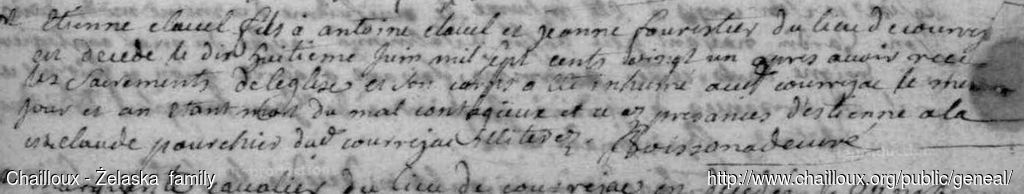 Etienne clauel fils a antoine clauel et jeanne fourestier du lieu de courrej
est decede le dix huitieme juin mil sept cents vingt un apres auoir receu
les sacrements de leglise et son corps a été inhumé aud courrejac le meme
jour et an etant mort du mal contagieux et ce ez presances destienne a la
et claude pourchier dud courrejac illiterez. Boissonade curé
Chailloux - Żelaska family
http://www.chailloux.org/public/geneal/
cavalier du lieu de courrejac